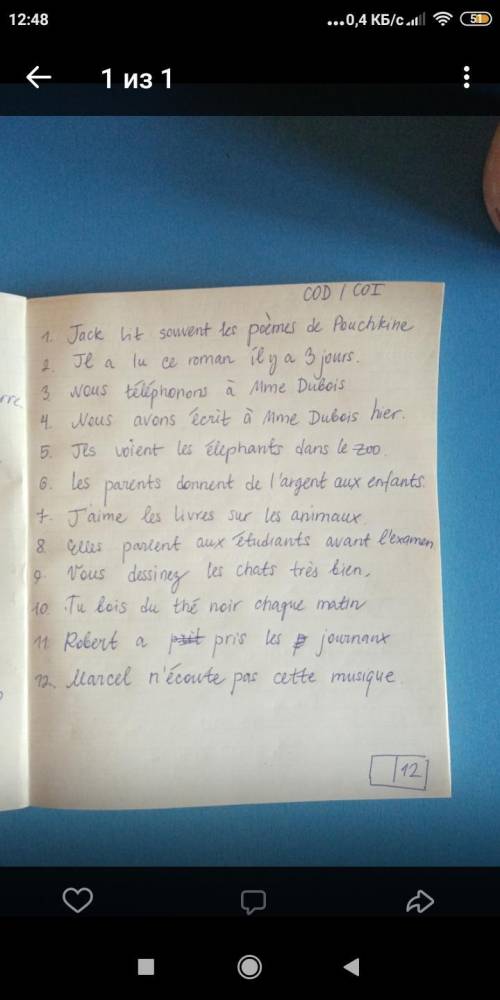 12:48
...0,4 КБ/с
51
1 из 1
COD / COI
1. Jack lit souvent les poèmes de Pouchkine
2. Il a lu ce roman il y a 3 jours.
3. Nous téléphonons à Mme Dubois
4. Nous avons écrit à Mme Dubois hier.
5. Ils voient les éléphants dans le zoo.
6. Les parents donnent de l'argent aux enfants.
7. J'aime les livres sur les animaux.
8. Elles parlent aux étudiants avant l'examen
9. Vous dessinez les chats très bien,
10. Tu bois du thé noir chaque matin
11. Robert a pris les journaux
12. Marcel n'écoute pas cette musique.
12